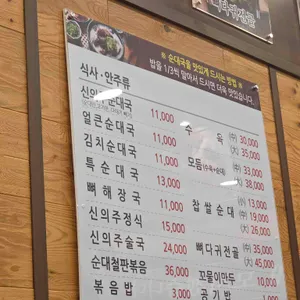 ※ 순대국을 맛있게 드시는 방법 ※
밥을 1/3씩 말아서 드시면 더욱 맛있습니다.
식사·안주류
신의주순대국 11,000
얼큰순대국 11,000
김치순대국 11,000
특순대국 13,000
뼈해장국 11,000
신의주정식 15,000
신의주술국 24,000
순대철판볶음 36,000
볶음밥 3,000
수육 (中) 30,000
(大) 35,000
모듬(수육+순대) (中) 33,000
(大) 38,000
찹쌀순대 (小) 13,000
(中) 19,000
(大) 26,000
뼈다귀전골 (中) 35,000
(大) 45,000
꼬물이만두 10,000
공기밥